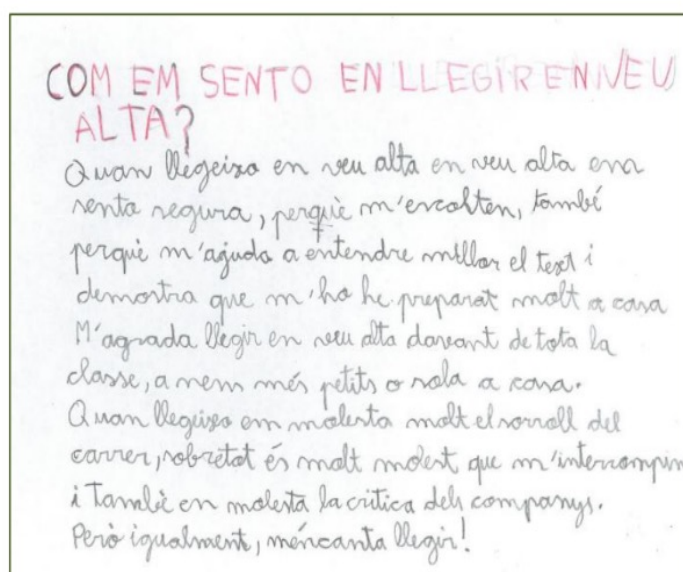 COM EM SENTO EN LLEGIR EN VEU
ALTA?
Quan llegeixo en veu alta en veu alta em
sento segura, perquè m'escolten, també
perquè m'ajuda a entendre millor el text i
demostra que m'ho he preparat molt a casa
M'agrada llegir en veu alta davant de tota la
classe, a nens més petits o sola a casa.
Quan llegeixo em molesta molt el sorroll del
carrer, sobretot és molt molest que m'interrompin
i també em molesta la critica dels companys.
Però igualment, m'encanta llegir!